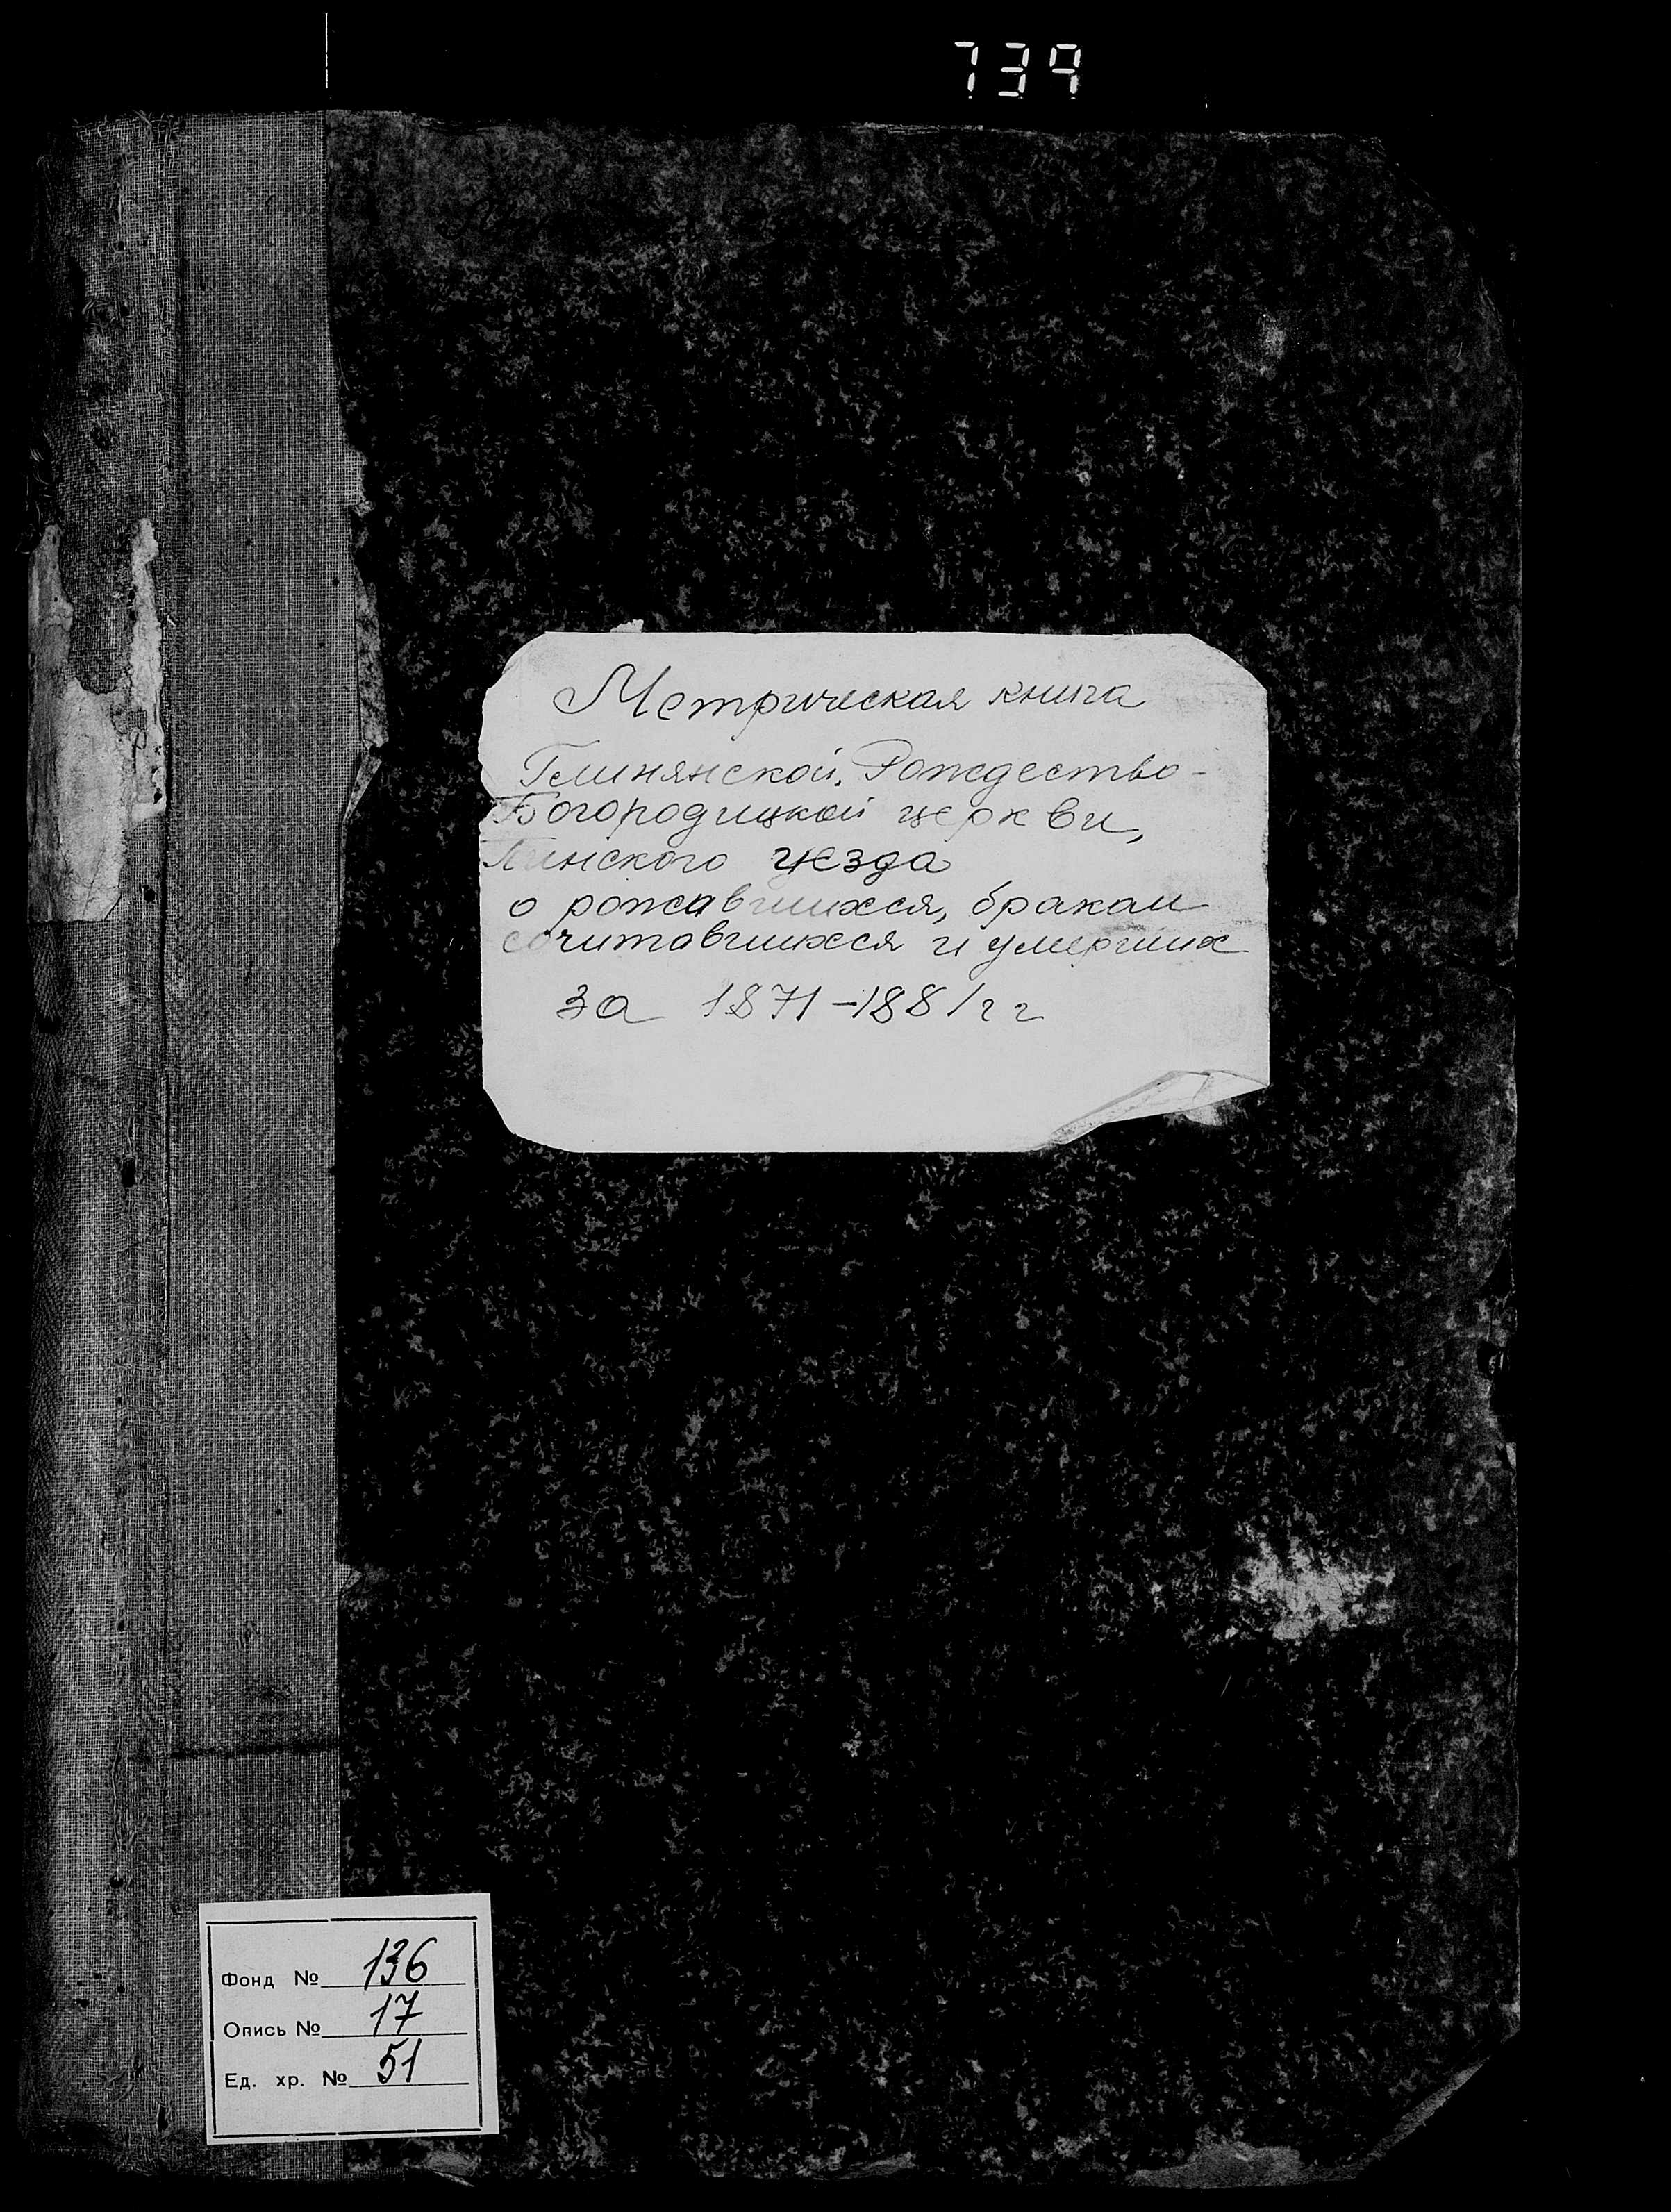 739
Метрическая книга
Глинянской, Рождество-
Богородицкой церкви,
Пинского уезда
о рожавшихся, браком
сочитавшихся и умерших
за 1871-1881 г г
Фонд № 136
Опись № 17
Ед. хр. № 51